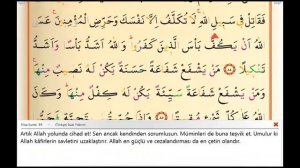 فَقَاتِلْ فِي سَبِيلِ اللّٰهِ لَا تُكَلَّفُ اِلَّا نَفْسَكَ وَحَرِّضِ الْمُؤْمِنِينَ عَسَى
اللّٰهُ اَنْ يَكُفَّ بَأْسَ الَّذِينَ كَفَرُوا وَاللّٰهُ اَشَدُّ بَأْسًا وَاَشَدُّ
تَنْكِيلًا ﴿٨٤﴾ مَنْ يَشْفَعْ شَفَاعَةً حَسَنَةً يَكُنْ لَهُ نَصِيبٌ مِنْهَا
وَمَنْ يَشْفَعْ شَفَاعَةً سَيِّئَةً يَكُنْ لَهُ كِفْلٌ مِنْهَا
Artık Allah yolunda cihad et! Sen ancak kendinden sorumlusun. Müminleri de buna teşvik et. Umulur ki
Allah kâfirlerin savletini uzaklaştırır. Allah en güçlü ve cezalandırması da en çetin olandır.